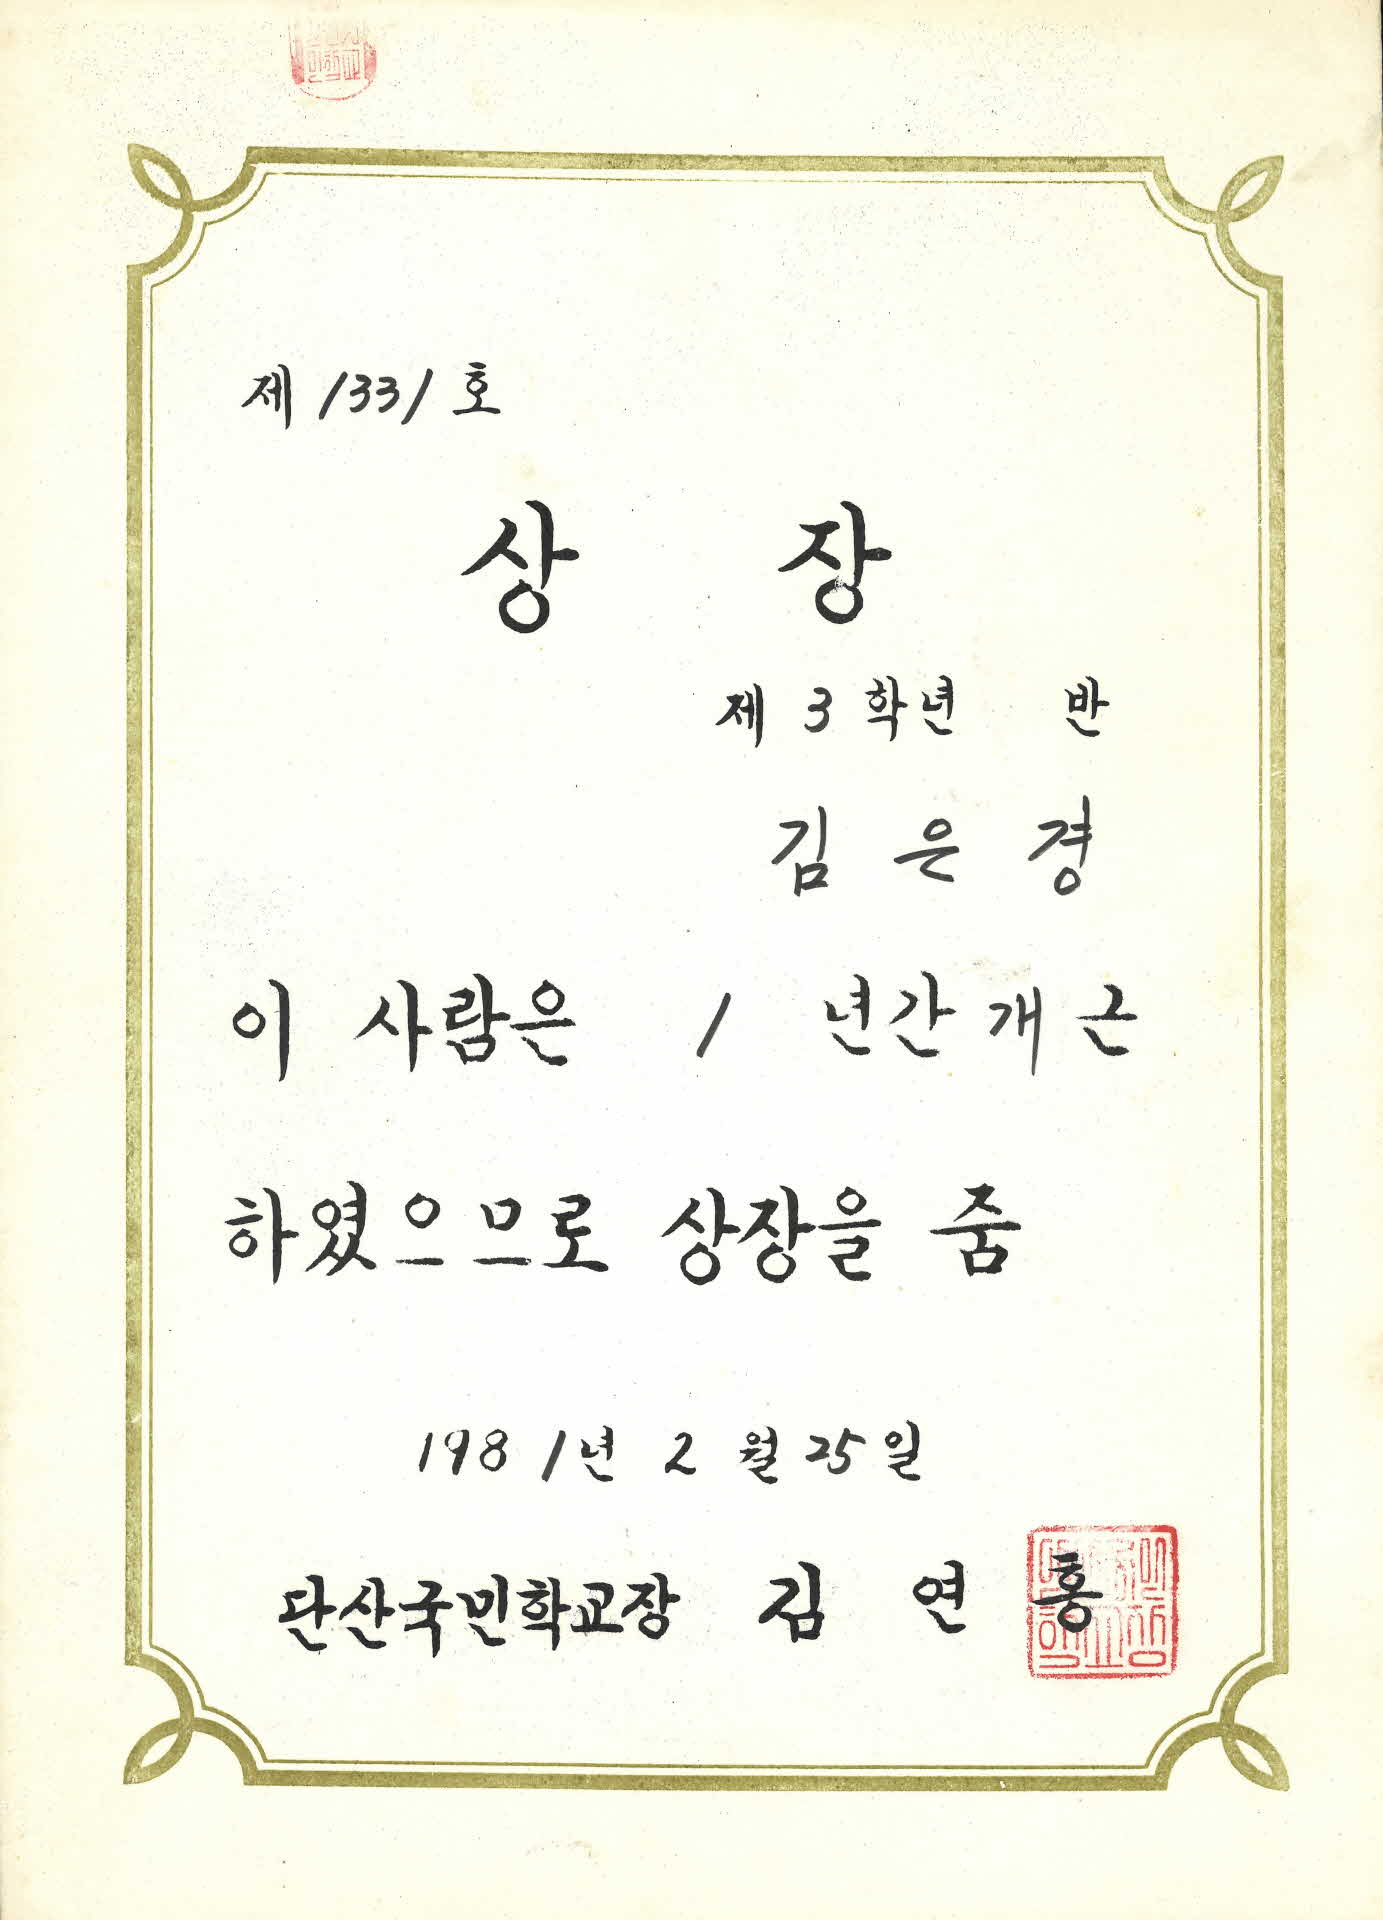 제 1331 호
상 장
제 3 학년 반
김 은 경
이 사람은 1 년간 개 근
하였으므로 상장을 줌
1981년 2 월 25일
단산국민학교장 김 연 홍